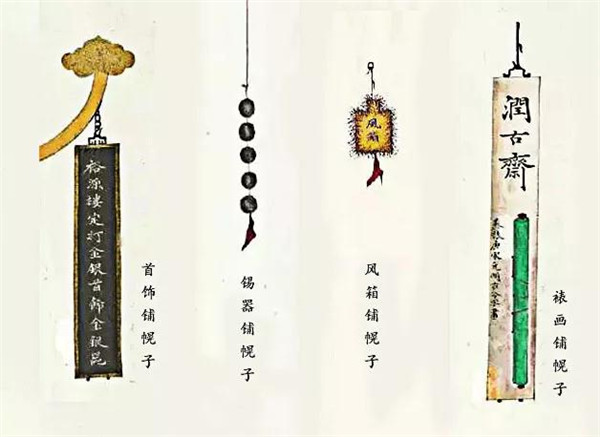 裕源楼定打金银首饰金银器
首饰铺幌子
锡器铺幌子
风箱
风箱铺幌子
潤古齋
裱画铺幌子